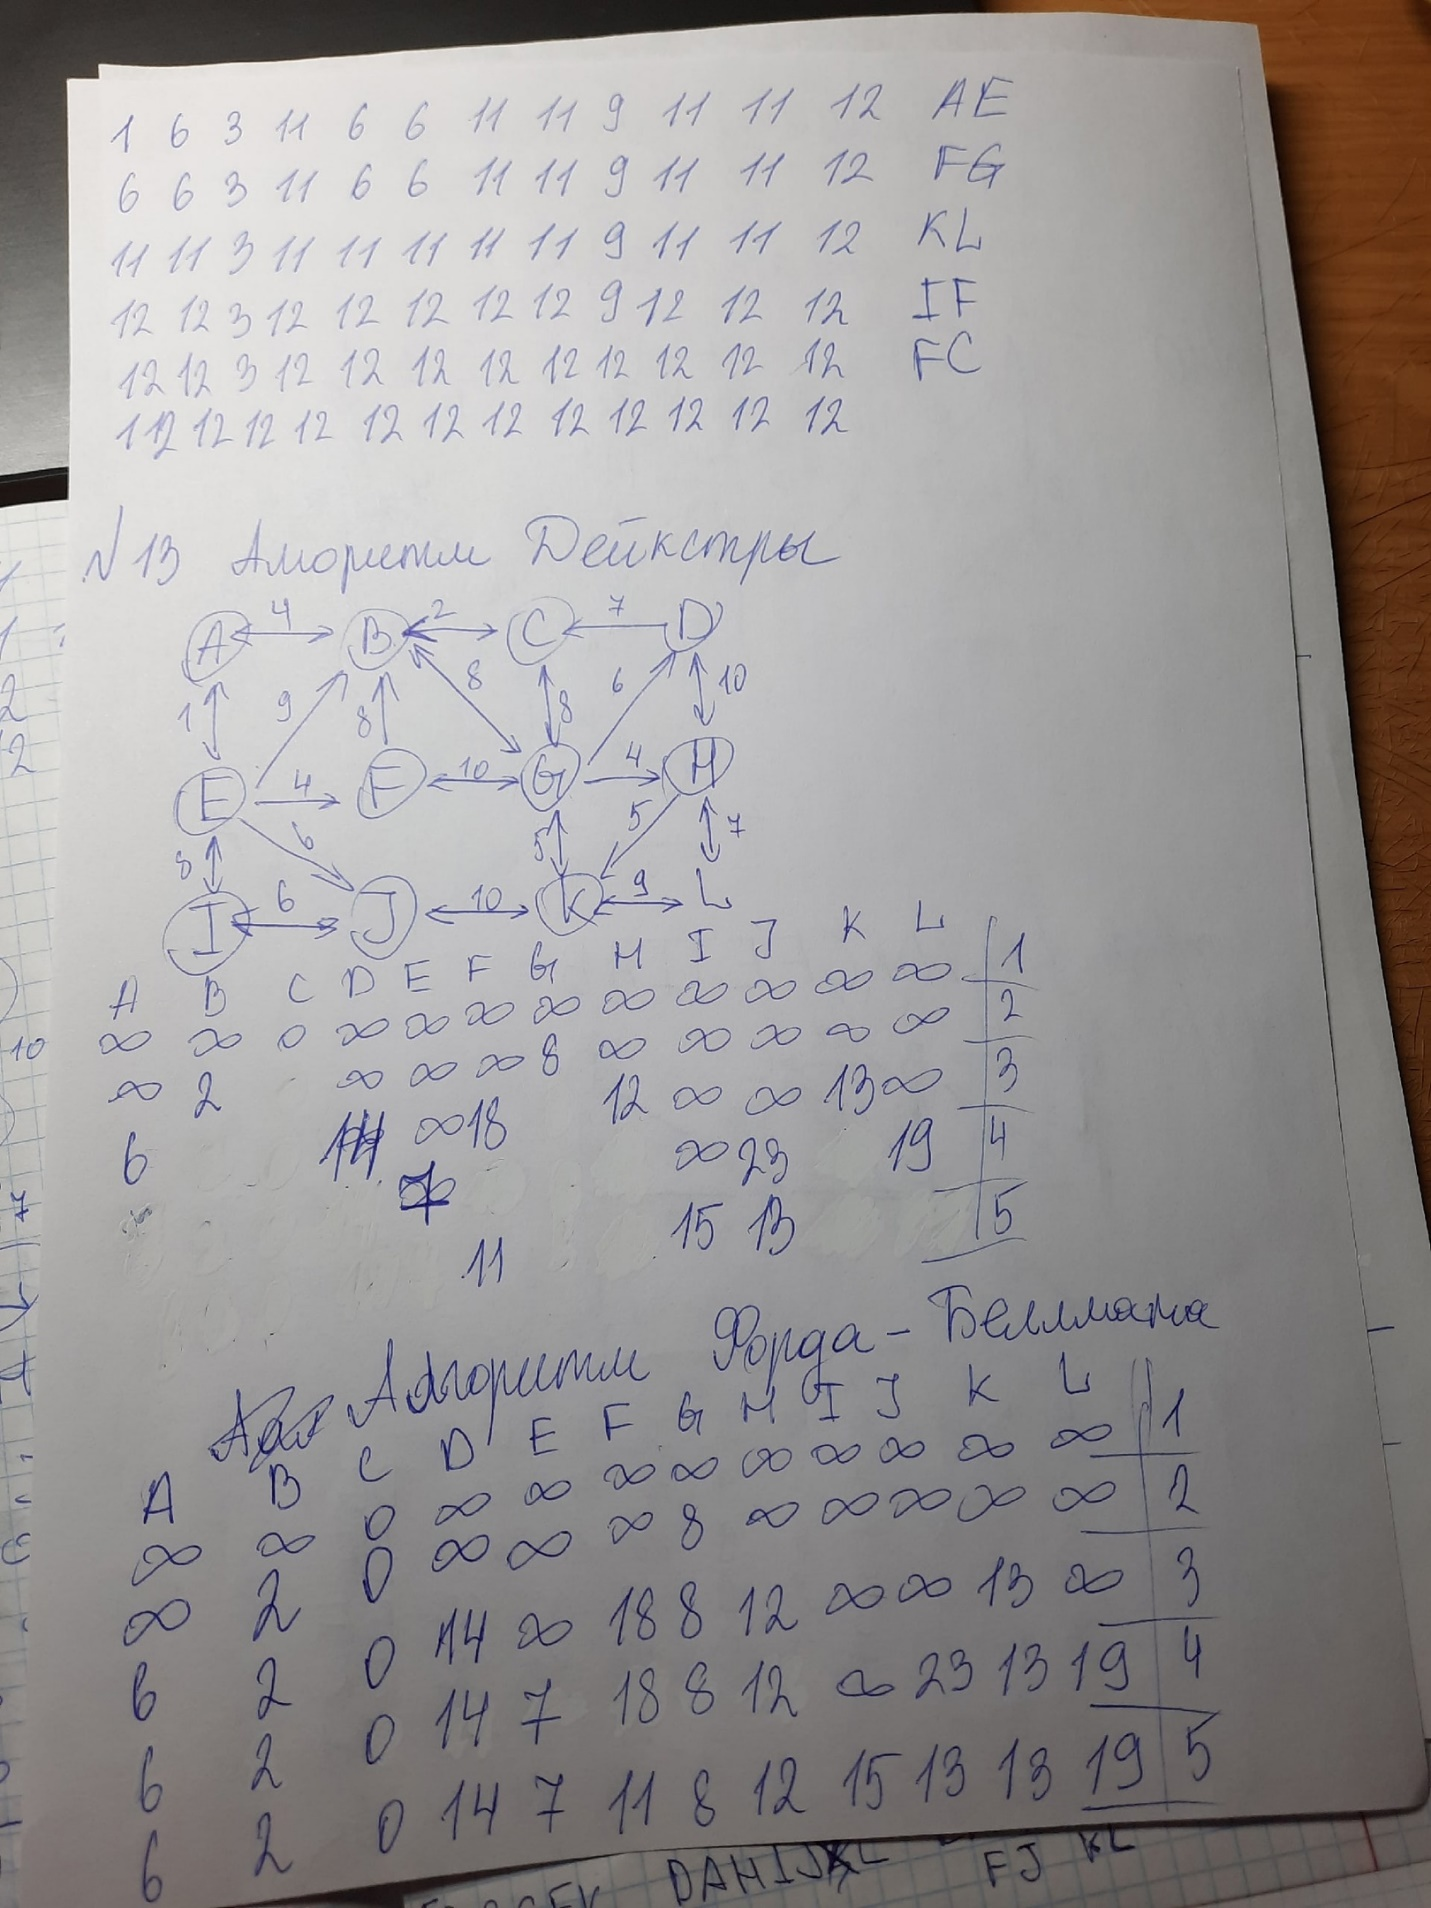 1 6 3 11 6 6 11 11 9 11 11 12 AE
6 6 3 11 6 6 11 11 9 11 11 12 FG
11 11 3 11 11 11 11 11 9 11 11 12 KL
12 12 3 12 12 12 12 12 9 12 12 12 IF
12 12 3 12 12 12 12 12 12 12 12 12 FC
112 12 12 12 12 12 12 12 12 12 12 12
№13 Алгоритм Дейкстры
A 4 B 2 C 7 D
1 9 8 8 8 6 10
E 4 F 10 G 4 H
8 6 5 5 7
I 6 J 10 K 9 L
A B C D E F G H I J K L
∞ ∞ 0 ∞ ∞ ∞ ∞ ∞ ∞ ∞ ∞ ∞ 1
∞ 2 ∞ ∞ ∞ 8 ∞ ∞ ∞ ∞ ∞ 2
6 14 ∞ 18 12 ∞ ∞ 13 ∞ 3
7 ∞ 23 19 4
11 15 13 5
Алгоритм Форда-Беллмана
A B C D E F G H I J K L
∞ ∞ 0 ∞ ∞ ∞ ∞ ∞ ∞ ∞ ∞ ∞ 1
∞ 2 0 ∞ ∞ ∞ 8 ∞ ∞ ∞ ∞ ∞ 2
6 2 0 14 ∞ 18 8 12 ∞ ∞ 13 ∞ 3
6 2 0 14 7 18 8 12 ∞ 23 13 19 4
6 2 0 14 7 11 8 12 15 13 13 19 5
FJ KL